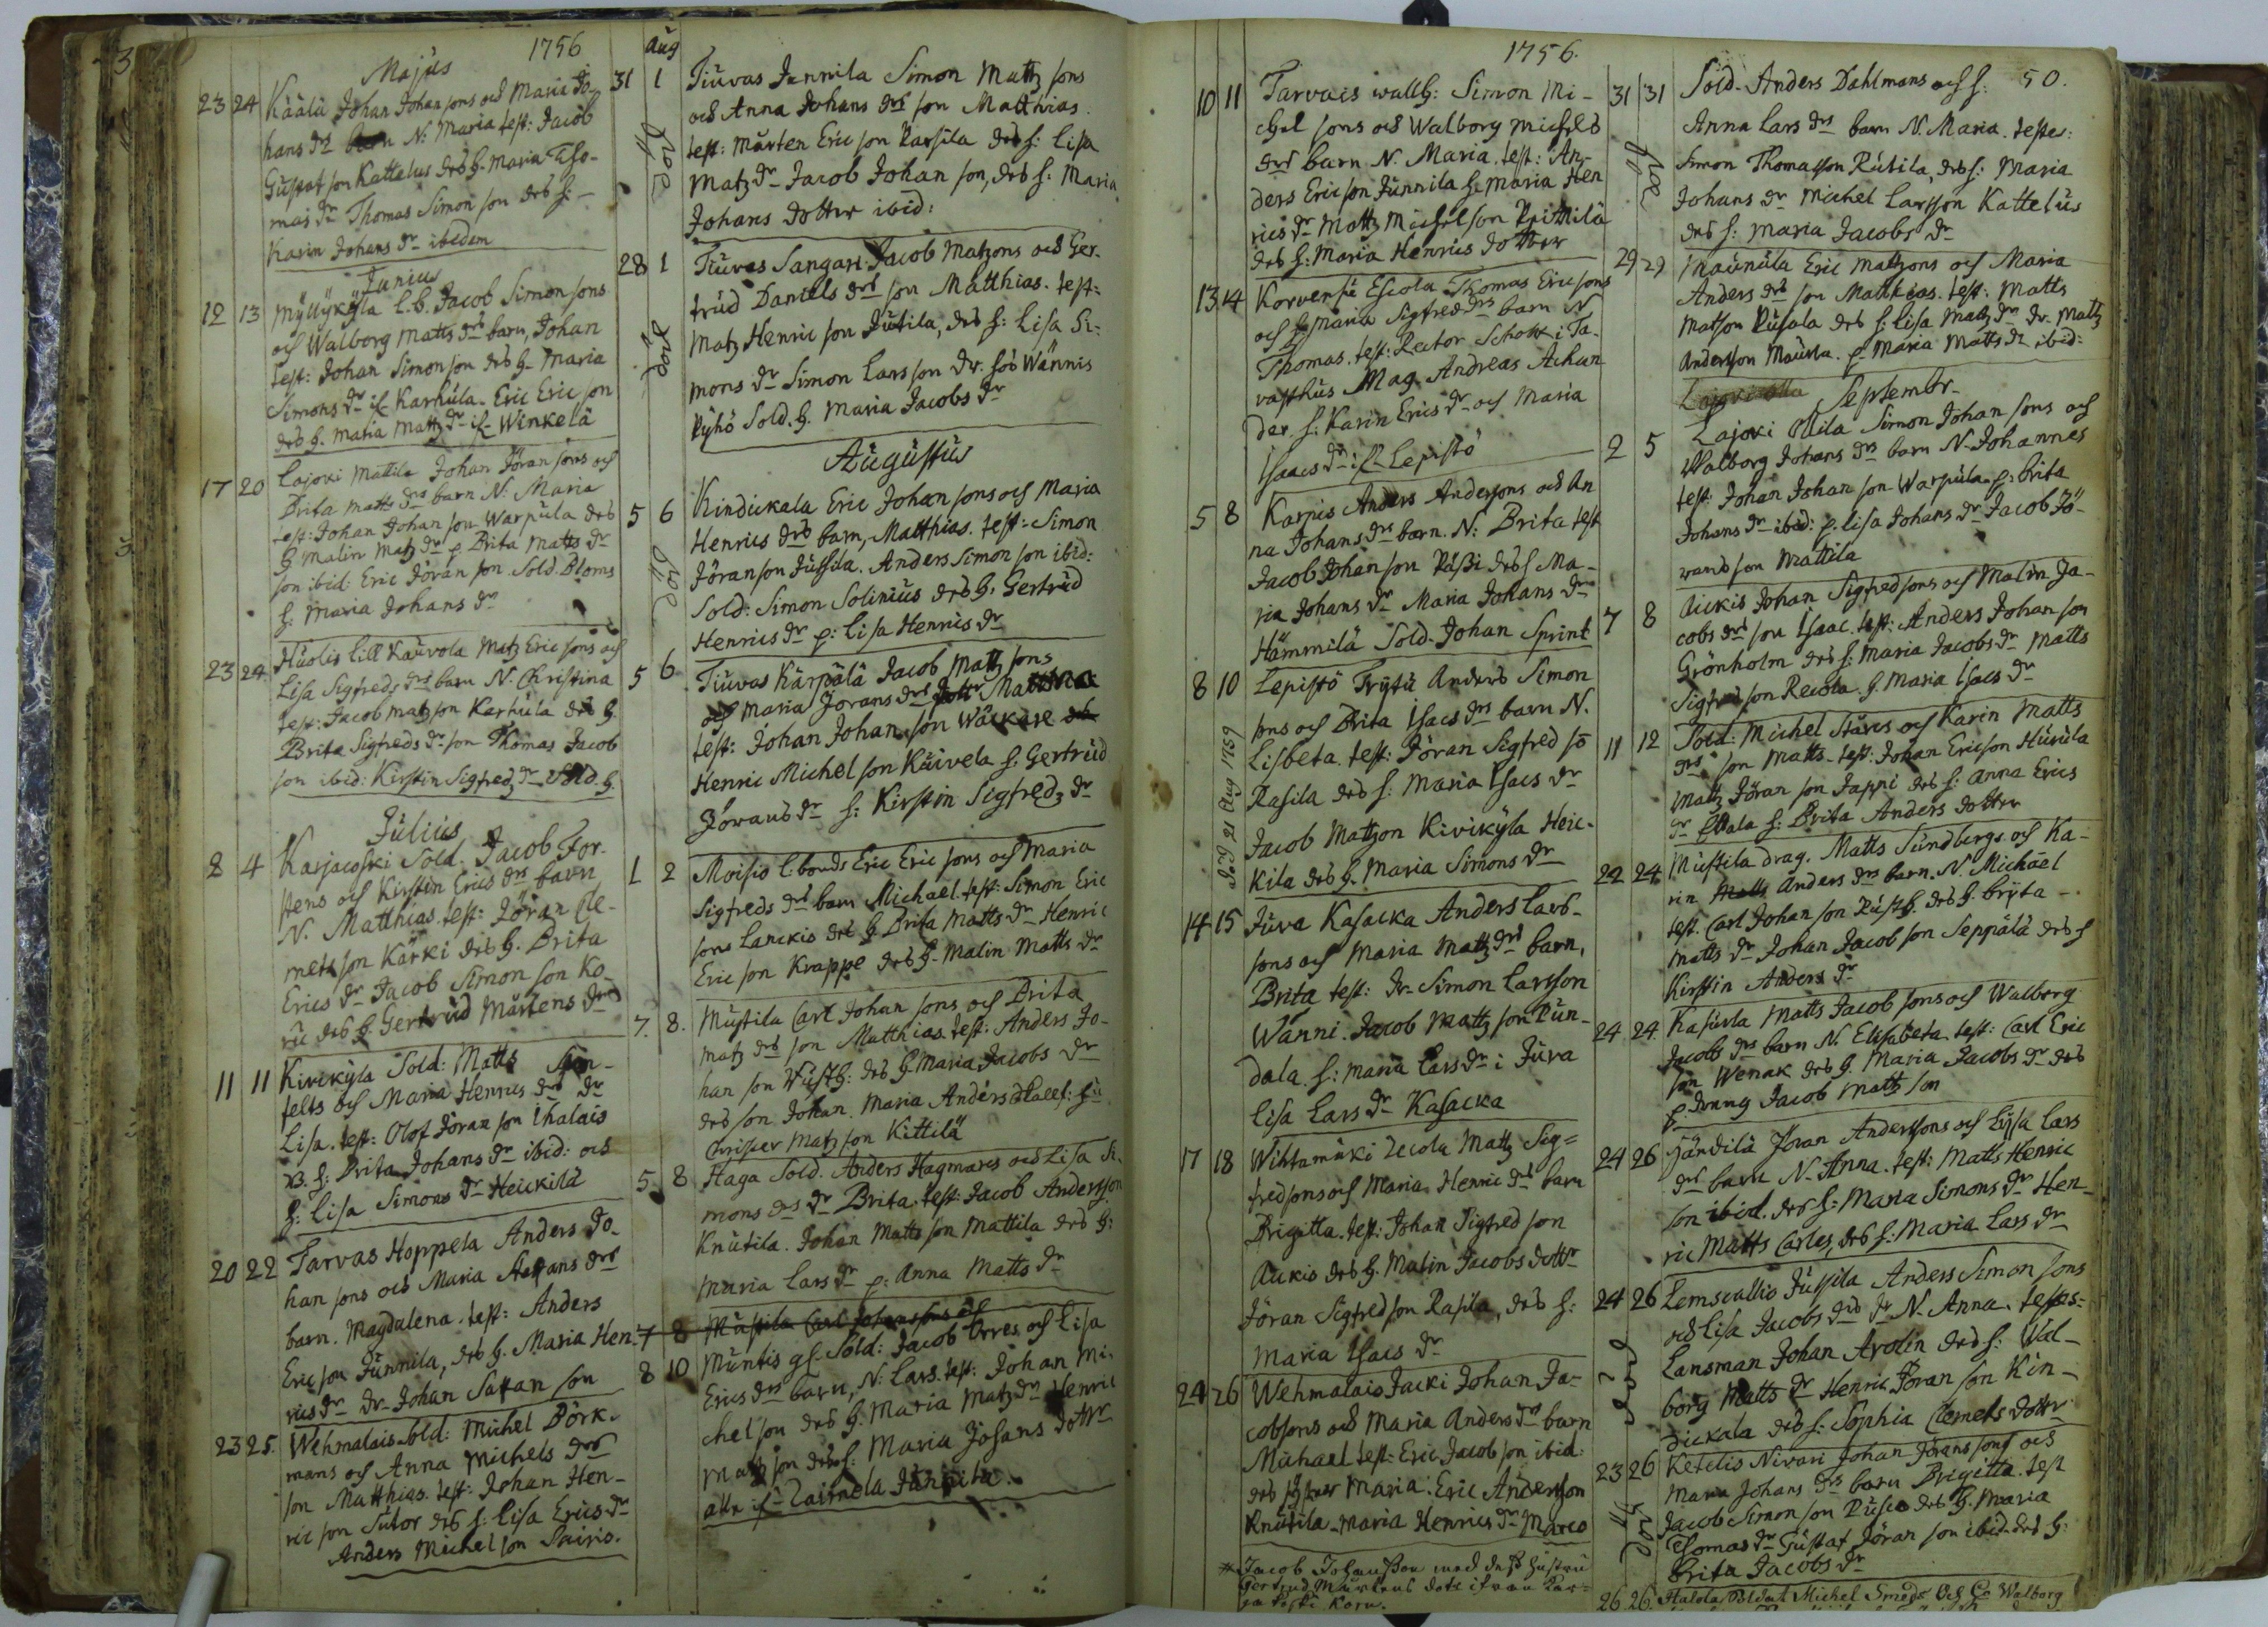 1756
Majus
23 24 Käälä Johan Johan sons och Maria Jo-
hans dr barn N: Maria test: Jacob
Gustaf son Kattelus des h. Maria Tho-
mas dr Thomas Simon son des h:
Karin Johans dr ibidem
Junius
12 13 Myllykyla l.b. Jacob Simon sons
och Walborg Matts drs barn, Johan
test: Johan Simon son des h. Maria
Simons dr if Karhula. Eric Eric son
des h. Maria Mattz dr if Winkelä
17 20 Lajoki Mattila Johan Jöran sons och
Brita Matts drs barn N: Maria
test: Johan Johan son Warpula des
h Malin Matz dr p Brita Matts dr
son ibid: Eric Jöran son Sold. Bloms
h: Maria Johans dr
23 24 Huolis lill Kauvola Matz Eric sons och
Lisa Sigfreds drs barn N. Christina
test: Jacob Matz son Karhula des h.
Brita Sigfreds dr son Thomas Jacob
son ibid: Kirstin Sigfredz dr Sold. h.
Julius
2 4 Karjacoski Sold. Jacob For-
stens och Kirstin Erics drs barn
N. Matthias. test: Jöran Cle-
mets son Kärki des h. Brita
Erics dr Jacob Simon son Ko-
ru des h. Gertrud Mårtens dr
11 11 Kivikyla Sold: Matts
felts och Maria Henrics drs dr
Lisa. test: Olof Jöran son Ihalais
h: Brita Johans dr ibid: och
h: Lisa Simons dr Heickilä
20 22 Tarvas Hoppela Anders Jo-
han sons och Maria Staffans drs
barn. Magdalena. test: Anders
Eric son Junnila, des h. Maria Hen-
rics dr dr Johan son
23 25. Wehmalais sold: Michel Börk-
mans och Anna Michels drs
son Matthias. test: Johan Hen-
ric son Sutor des h: Lisa Erics dr
Anders Michel son Pairis.
Aug
31 1 Tiuvas Jannila Simon Mattz sons
och Anna Johans drs son Matthias.
test: Mårten Eric son Parsila des h: Lisa
Matz dr Jacob Johan son, des h: Maria
Johans dotter ibid:
28 1 Tiuvas Sangari Jacob Matzons och Ger-
trud Daniels drs son Matthias. test:
Matz Henric son Jutila, des h: Lisa Si-
mons dr Simon Lars son dr. hos Wännis
Pyhö Sold. h. Maria Jacobs dr
Augustus
5 6 Kindickala Eric Johan sons och Maria
Henrics drs barn, Matthias. test: Simon
Jöranson Jussila. Anders Simon son ibid:
Sold: Simon Solinius des h. Gertrud
Henrics dr p: Lisa Henrics dr
5 6 Tiuvas Kärpälä Jacob Mattz sons
och Maria Jörans drs
test: Johan Johan son Wäckäre
Henric Michel son Käivela h. Gertrud
Jörans dr h: Kirstin Sigfredz dr
1 2 Moisio l:bonds Eric Eric sons och Maria
Sigfreds drs barn Michael. test: Simon Eric
sons Lanckis des h Brita Matts dr Henric
Eric son Krappe des h. Malin Matts dr
7. 8. Mustila Carl Johan sons och Brita
Matz drs son Matthias. test: Anders Jo-
han son Wusth: des h. Maria Jacobs dr
des son Johan. Maria Anders
Christer Matz son Kittilä
5 8 Haga Sold. Anders Hagmans och Lisa Si-
mons drs dr Brita. test: Jacob Andersson
Knutila. Johan Matts son Mattila des h:
Maria Lars dr p: Anna Matts dr
7 8 Mustila Carl Johansons och
8 10 Muntis gl. Sold: Jacob Orres och Lisa
Erics drs barn, N: Lars. test: Johan Mi-
chel son des h. Maria Matz dr Henric
Matz son des h: Maria Johans dotter
alla if
1756.
10 11 Tarvais wallb: Simon Mi-
chel sons och Walborg Michels
drs barn N. Maria. test: An-
ders Eric son Junnila h. Maria Hen
rics dr Mattz Michel son Prittilä
des h: Maria Henrics dotter
13 14 Korvensu Escola Thomas Eric sons
och h Maria Sigfreds drs barn N
Thomas. test: Rector i Ta-
vasthus Mag. Andreas Achan
der. h. Karin Erics dr och Maria
Isaacs dr if Lepistö
5 8 Karpis Anders Andersons och An
na Johans drs barn. N: Brita test
Jacob Johan son Pässi des h Ma-
ria Johans dr Maria Johans dr
Hämmilä Sold. Johan Sprint
8 10 Lepistö Frytu Anders Simon
sons och Brita Isacs drs barn N.
Lisbeta. test: Jöran Sigfred so
Rasila des h: Maria Isacs dr
Jacob Mattzon Kivikyla Heic-
kila des h. Maria Simons dr
död 21 Aug 1759
14 15 Juva Kasacka Anders Lars-
sons och Maria Mattz drs barn,
Brita test: dr. Simon Larsson
Wänni. Jacob Mattz son Pun-
dola. h: Maria Lars dr i Juva
Lisa Lars dr Kasacka
17 18 Wihtamäki Ucola Mattz Sig-
fred sons och Maria Henric drs barn
Brigitta. test: Johan Sigfred son
Aukis des h. Malin Jacobs dottr
Jöran Sigfred son Rasila, des h:
Maria Isacs dr
24 26 Wehmalais Jacki Johan Ja-
cobsons och Maria Anders drs barn
Michael test: Eric Jacob son ibid:
des syster Maria. Eric Andersson
Knutila. Maria Henrics dr Marco
Jacob Johansson med dess hustru
Gertrud Mårtens dotr ifrån Kar-
ja koski Koru.
50.
31 31 Sold. Anders Dahlmans och h:
Anna Lars drs barn N. Maria. testes:
Simon Thomasson Rutila, des h: Maria
Johans dr Michel Larsson Kattelus
des h: Maria Jacobs dr
29 29 Maunula Eric Mattzons och Maria
Anders drs son Matthias. test: Matts
Matson Pusala des h: Lisa Matz dr dr. Mattz
Andersson Maunla. p Maria Matts dr ibid:
Septembr.
2 5 Lajoki Ollila Simon Johan sons och
Walborg Johans drs barn N. Johannes
test: Johan Johan son Warpula p: Brita
Johans dr ibid: p. Lisa Johans dr Jacob Jö-
rans son Mattila
7 8 Auckis Johan Sigfred sons och Malin Ja-
cobs drs son Isaac. test: Anders Johan son
Grönholm des h: Maria Jacobs dr Matts
Sigfred son Recola. h. Maria Isacs dr
11 12 Sold: Michel Stares och Karin Matts
drs son Matts. test: Johan Ericson Huvula
Mattz Jöran son Jappi des h: Anna Erics
dr Ollala h: Brita Anders dotter
22 24 Mustila drag. Matts Sundbergs och Ka-
rin Anders drs barn. N. Michael
test. Carl Johan son Rusth. des h. Bryta
Matts dr Johan Jacob son Seppälä des h
Kirstin Anders dr
24 24. Kasurla Matts Jacob sons och Walborg
Jacobs drs barn N. Elisabeta. test: Carl Eric
son Wenak des h. Maria Jacobs dr des
p. dräng Jacob Matts son
24 26 Jändilä Jöran Andersons och Lissa Lars
drs barn N. Anna. test: Matts Henric
son ibid. des h: Maria Simons dr Hen-
ric Matts Carles, des h: Maria Lars dr
24 26 Lemscallio Jussila Anders Simon sons
och Lisa Jacobs drs dr N. Anna. testes:
Lansman Johan Avolin des h: Wal-
borg Matts dr Henric Jöran son Kin-
dickala des h: Sophia Clemets dotter
23 26 Ketelis Nivari Johan Jörans sons och
Maria Johans drs barn Brigitta. test
Jacob Simon son des h. Maria
Thomas dr Gustaf Jöran son ibid. des h:
Brita Jacobs dr
26 26. Halola Soldat Michel Smeds och Walborg